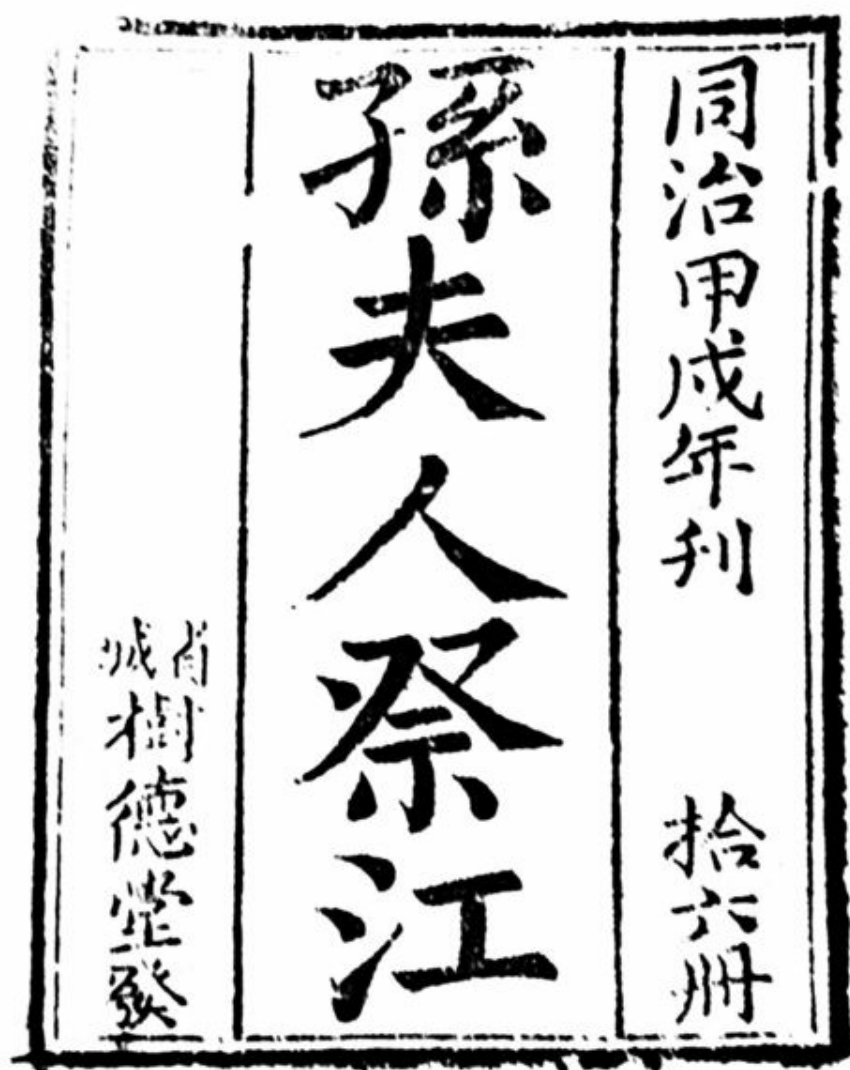 同治甲戌年刊 拾六冊
孫夫人祭江
省城樹德堂發